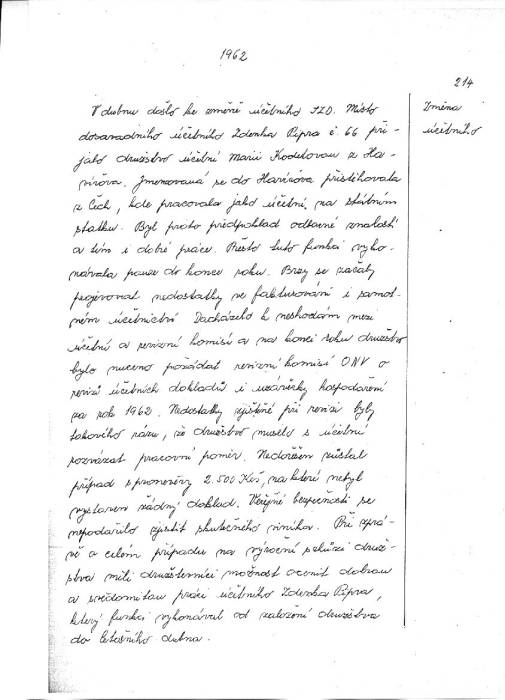 1962
214
V dubnu došlo ke změně účetního JZD. Místo
Změna
dosavadního účetního Zdenka Pipra č. 66 při-
účetního
jalo družstvo účetní Marii Kodetovou z Ha-
vířova. Jmenovaná se do Havířova přistěhovala
z Čech, kde pracovala jako účetní na státním
statku. Byl proto předpoklad odborné znalosti
a tím i dobré práce. Přesto tuto funkci vyko-
návala pouze do konce roku. Brzy se začaly
projevovat nedostatky ve fakturování i samot-
ném účetnictví. Docházelo k neshodám mezi
účetní a revizní komisí a na konci roku družstvo
bylo nuceno požádat revizní komisi ONV o
revizi účetních dokladů i uzávěrky hospodaření
za rok 1962. Nedostatky zjištěné při revizi byly
takového rázu, že družstvo muselo s účetní
rozvázat pracovní poměr. Nedořešen zůstal
případ zpronevěry 2.500 Kčs, na které nebyl
vystaven žádný doklad. Veřejné bezpečnosti se
nepodařilo zjistit skutečného viníka. Při zprá-
vě o celém případu na výroční schůzi druž-
stva měli družstevníci možnost ocenit dobrou
a svědomitou práci účetního Zdenka Pipra,
který funkci vykonával od založení družstva
do letošního dubna.